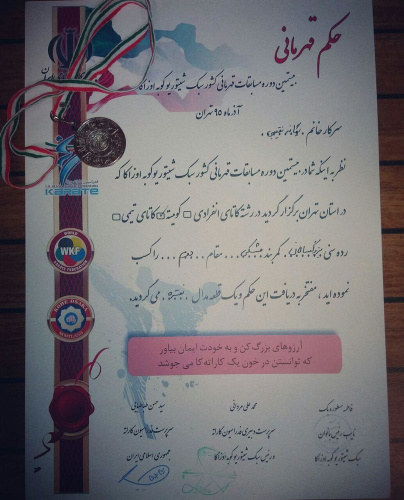 حکم قهرمانی
بیستمین دوره مسابقات قهرمانی کشور سبک شیتوریو کوبه اوزاکا
آذر ماه ۹۵ تهران
سرکار خانم
نظر به اینکه شما در بیستمین دوره مسابقات قهرمانی کشور سبک شیتوریو کوبه اوزاکا که
در استان تهران برگزار گردید در رشته کاتای انفرادی □ کومیته ☑ کاتای تیمی □
رده سنی بزرگسالان کمربند مشکی مقام دوم را کسب
نموده اید، مفتخر به دریافت این حکم و یک قطعه مدال نقره می گردید.
KARATE
WORLD
WKF
KARATE FEDERATION
KOBE OSAKA
آرزوهای بزرگ کن و به خودت ایمان بیاور
که توانستن در خون یک کاراته کا می جوشد
فاطمه
نایب رئیس بانوان
سبک شیتوریو کوبه اوزاکا
محمد علی مردانی
سرپرست دبیری فدراسیون کاراته
و رئیس سبک شیتوریو کوبه اوزاکا
سید حسن طباطبایی
سرپرست فدراسیون کاراته
جمهوری اسلامی ایران